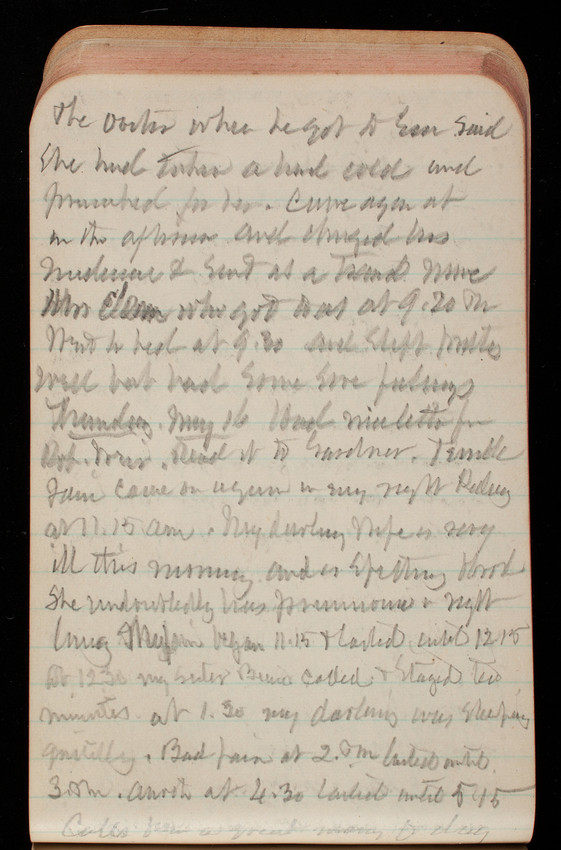 The Doctor when he got to Em said
She had taken a hard cold and
prescribed for her. Came again at
in the afternoon and changed his
medicine & sent as a Trained nurse
Mrs who got here at 9.20 Pm
Went to bed at 9.30 and slept pretty
well but had some sore feelings
Thursday. May 16 Had nice letter from
Read it to Gardner. Terrible
pain came on again in my right Kidney
at 11.15 am. My darling wife is very
ill this morning and is spitting blood
She undoubtedly has pneumonia in right
lung My pain began 11.15 & lasted until 12 15
At 12 30 my sister called & stayed ten
minutes. at 1.30 my darling was sleeping
quietly. Bad pain at 2. Pm lasted until
3 Pm. Another at 4.30 lasted until 5 15
a great many to day